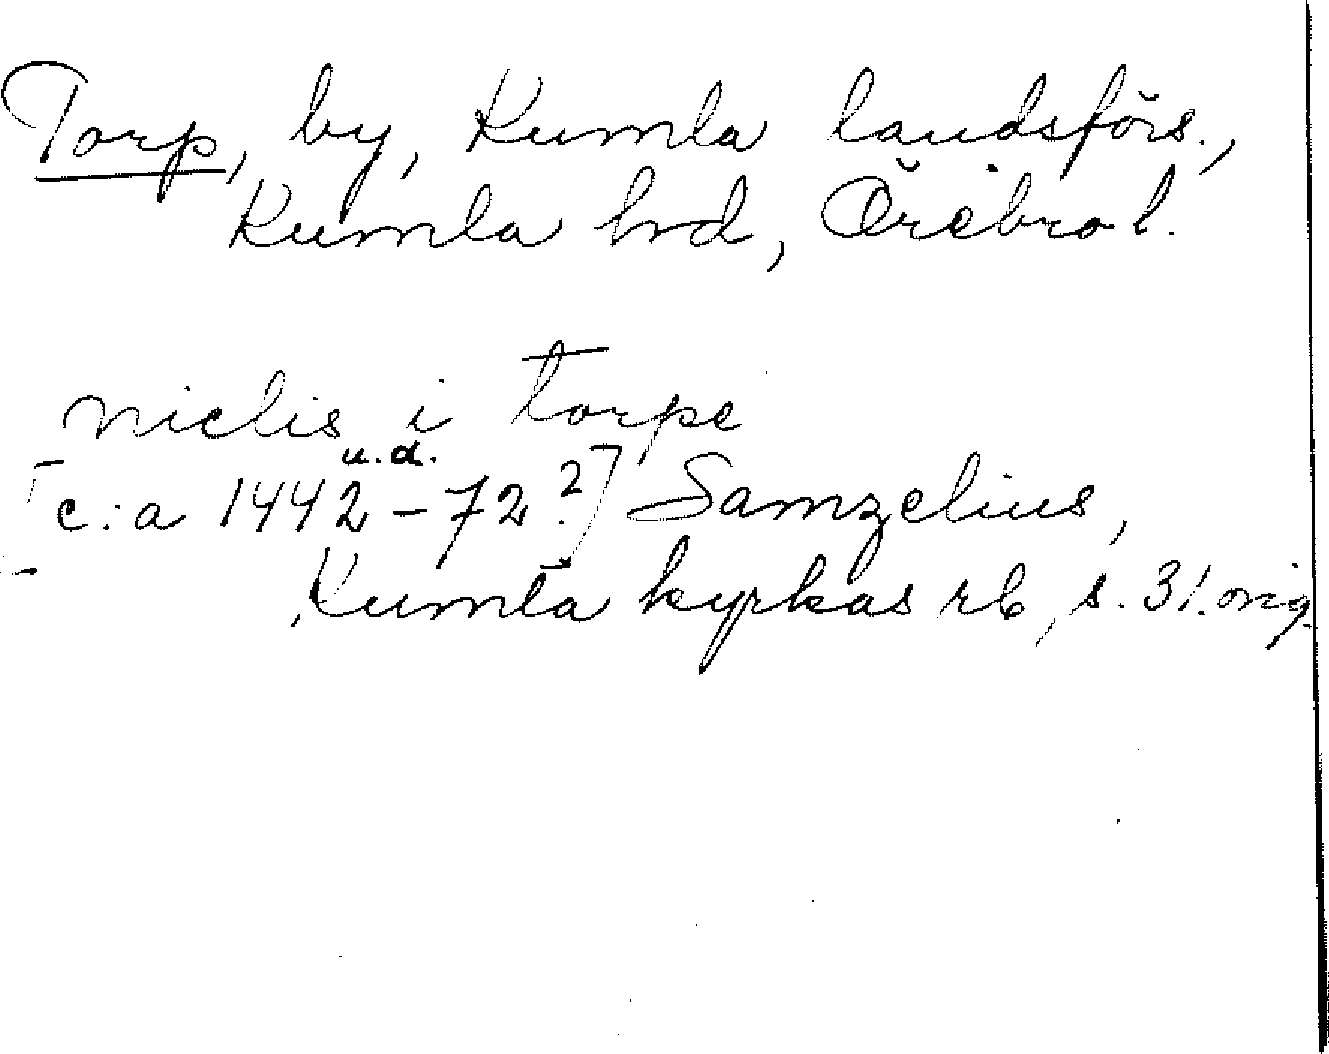 Torp, by, Kumla landsförs.,
Kumla hrd, Örebro l.
niclis i torpe
u.d.
[c:a 1442-72?] Samzelius,
Kumla kyrkas rb, s. 31. orig.